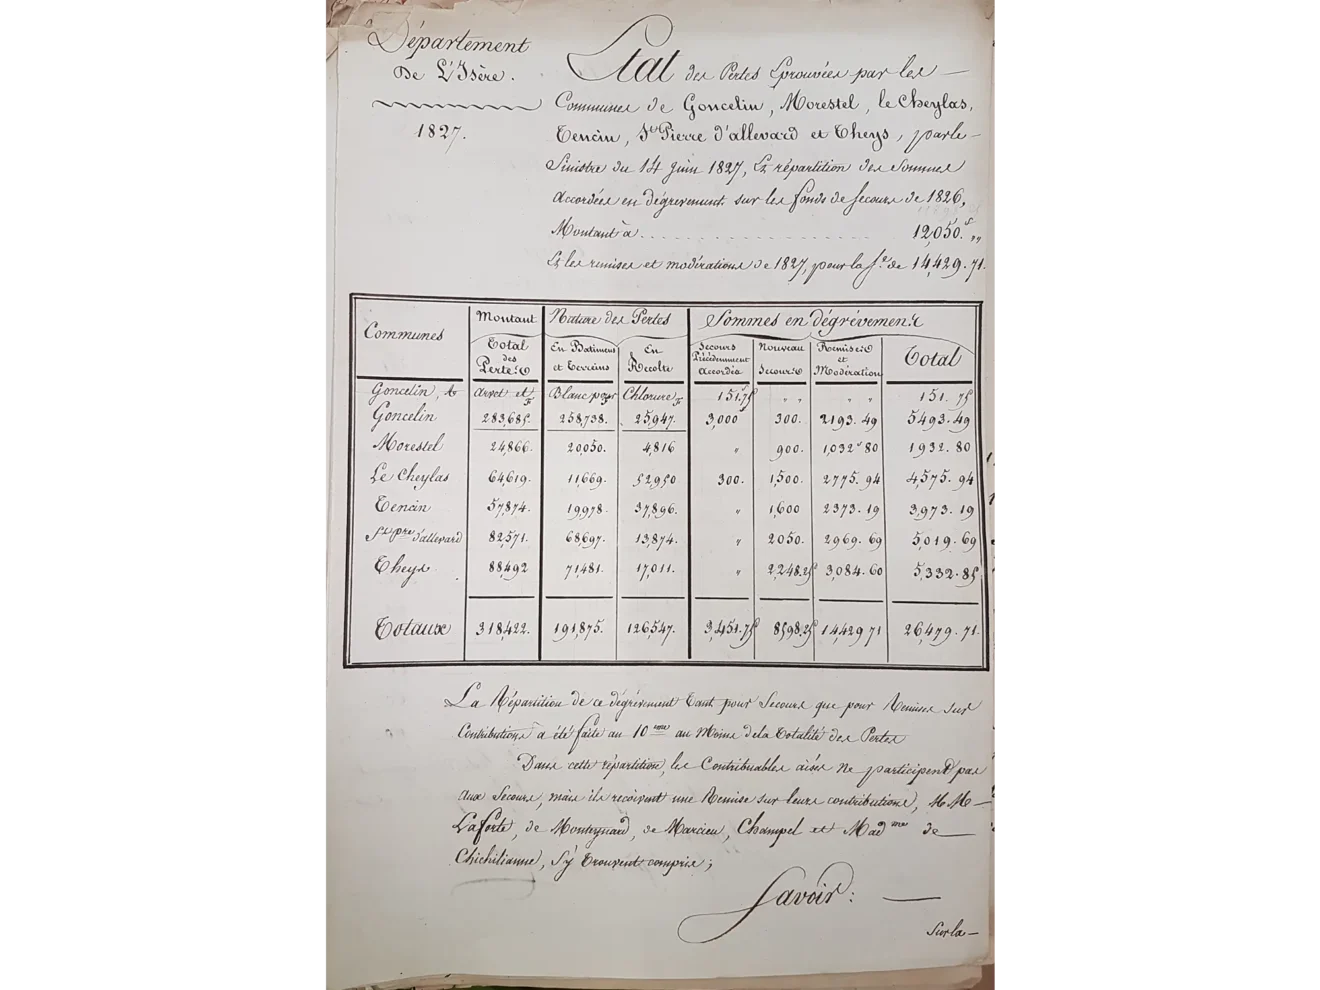 Département
De L'Isère.
1827.
Etat des Pertes Eprouvées par les
Communes de Goncelin, Morestel, le Cheylas,
Tencin, St Pierre d'allevard et Theys, par le
Sinistre du 14 Juin 1827, Et répartition des Sommes
Accordées en dégrevement sur les fonds de secours de 1826,
Montant à . . . . . . 12,050.f "
Et les remises et modérations de 1827, pour la s.e de 14,429.71.
Communes Montant Total des Pertes Nature des Pertes Sommes en dégrèvement
En Batimens et Terreins En Récolte Secours Précédemment accordés Nouveau Secours Remises et Modération Total
Goncelin, à Arvet et Blanc pour Chlorure 151.75 " " " " 151.75
Goncelin 283,685. 258,738. 25,947. 3,000 300. 2193.49 5493.49
Morestel 24,866. 20,050. 4,816 " 900. 1,032.80 1932.80
Le Cheylas 64619. 11,669. 52950 300. 1,500 2775.94 4,575.94
Tencin 57,874. 19,978. 37,896. " 1,600 2373.19 3,973.19
St pre d'allevard 82,571. 68,697. 13,874. " 2050. 2969.69 5,019.69
Theys 88,492 71,481. 17,011. " 2,248.25 3,084.60 5,332.85
Totaux 318,422. 191,875. 126,547. 3,451.75 8598.25 14429 71 26,479.71.
La Répartition de ce dégrévement tant pour Secours que pour Remises sur
Contributions à été faite au 10eme au Moins de la Totalité des Pertes
Dans cette répartition, les Contribuables aisés ne participent pas
aux Secours, mais ils reçoivent une Remise sur leurs contributions, M M
Laforte, de Monteynard, de Marcieu, Champel et Madme de
Chichilianne, s'y trouvent compris;
Savoir:
Sur la